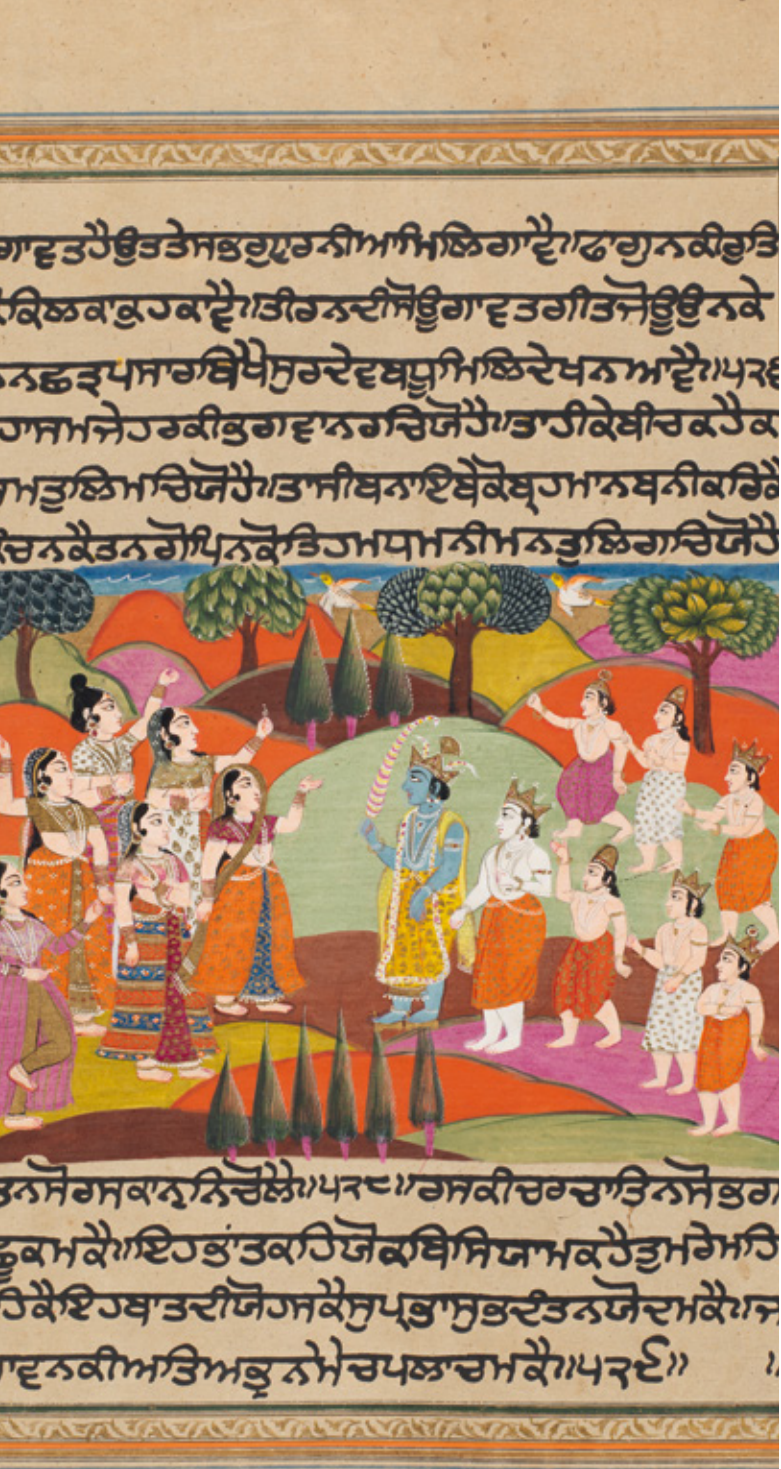 ਗਾਵਤਹੈਉਤਤੇਸਭਗੁਪਰਨੀਆਮਿਲਿਗਾਵੈ॥ਫਾਗੁਨਕੀਰੁਤਿ
ਕਿਲਕਾਕੁਹਕਾਵੈ॥ਤੀਰਨਦੀਸੋਊਗਾਵਤਗੀਤਜੋਊਉਨਕੇ
ਨਨਛਤ੍ਰਪਸਾਰਥਿਖੈਸੁਰਦੇਵਬਧੂਮਿਲਿਦੇਖਨਆਵੈ॥੫੨੬
ਹਾਸਮਜੇਹਰਕੀਭਗਵਾਨਰਚਿਯੋਹੈ॥ਤਾਹੀਕੇਬੀਚਕਹੈਕ
ਮਤੁਲਿਮਚਿਯੋਹੈ॥ਤਾਸੀਬਨਾਇਬੇਕੋਬ੍ਰਹਮਾਨਬਨੀਕਰਿਕੈ
ਕੰਚਨਕੈਤਨਗੋਪਿਨਕੋਤਿਹਮਧਮਨੀਮਨਤੁਲਿਗਚਿਯੋਹੈ
ਤਨਸੋਰਸਕਾਨ੍ਹਨਿਚੋਲੈ॥੫੨੮॥ਰਸਕੀਚਰਚਾਤਿਨਸੋਭਗ
ਛੂਕਮਕੈ॥ਇਹਭਾਂਤਕਹਿਯੋਕਬਿਸਿਯਾਮਕਹੈਤੁਮਰੇਮਹਿ
ਹਿਕੈਇਹਬਾਤਦੀਯੋਹਸਕੈਸੁਪ੍ਰਭਾਸੁਭਦੰਤਨਯੋਦਮਕੈ॥ਜ
ਵਨਕੀਅਤਿਅਭ੍ਰਨਮੇਚਪਲਾਚਮਕੈ॥੫੨੯॥